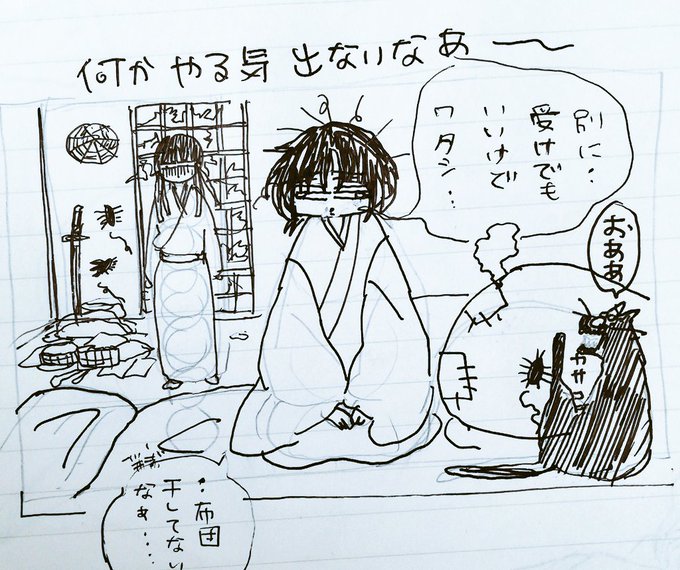 何か やる気 出ないなあ〜
別に・・
受けでも
いいけで
ワタシ・・
おああ
・・布団
干してない
なぁ・・・・